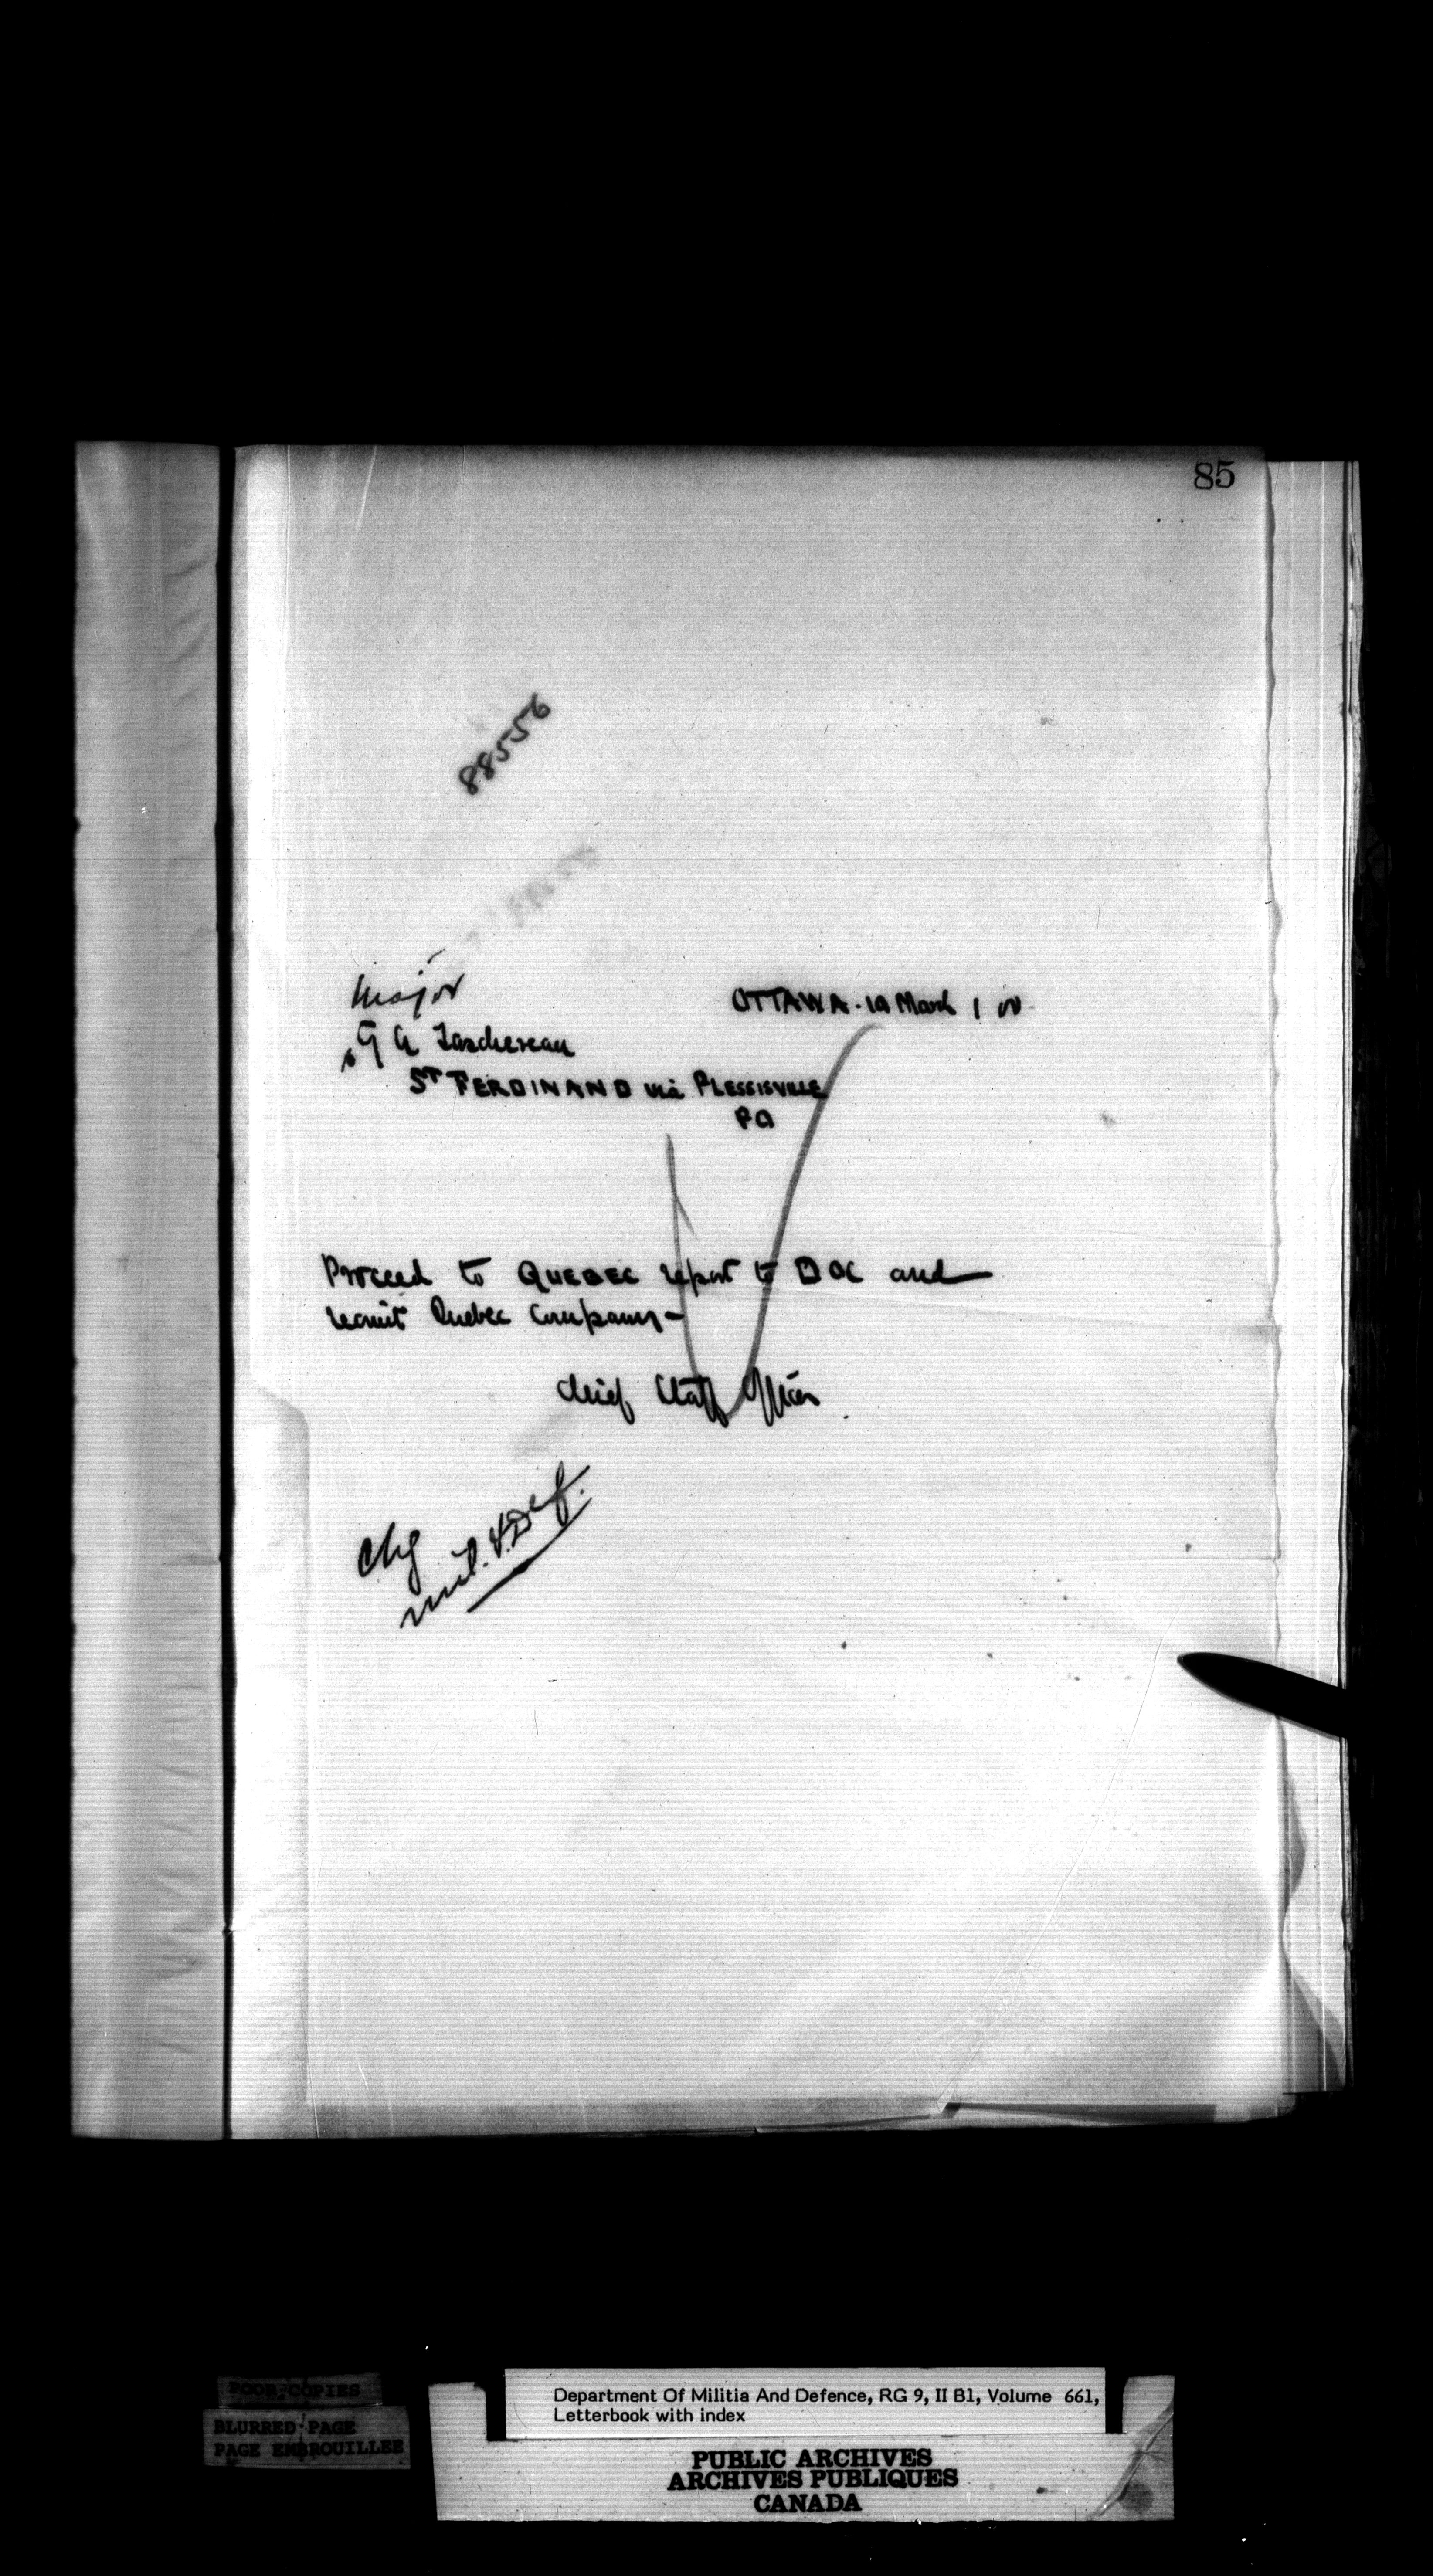 85
88556
Major
OTTAWA. 10 March 1 00
G A Taschereau
ST FERDINAND via PLESSISVILLE
PQ
Proceed to QUEBEC report to DOC and
recruit Quebec Company -
Chief Staff Officer
Chg
Mil. & Def.
POOR COPIES
BLURRED PAGE
PAGE EMBROUILLEE
Department Of Militia And Defence, RG 9, II B1, Volume 661,
Letterbook with index
PUBLIC ARCHIVES
ARCHIVES PUBLIQUES
CANADA